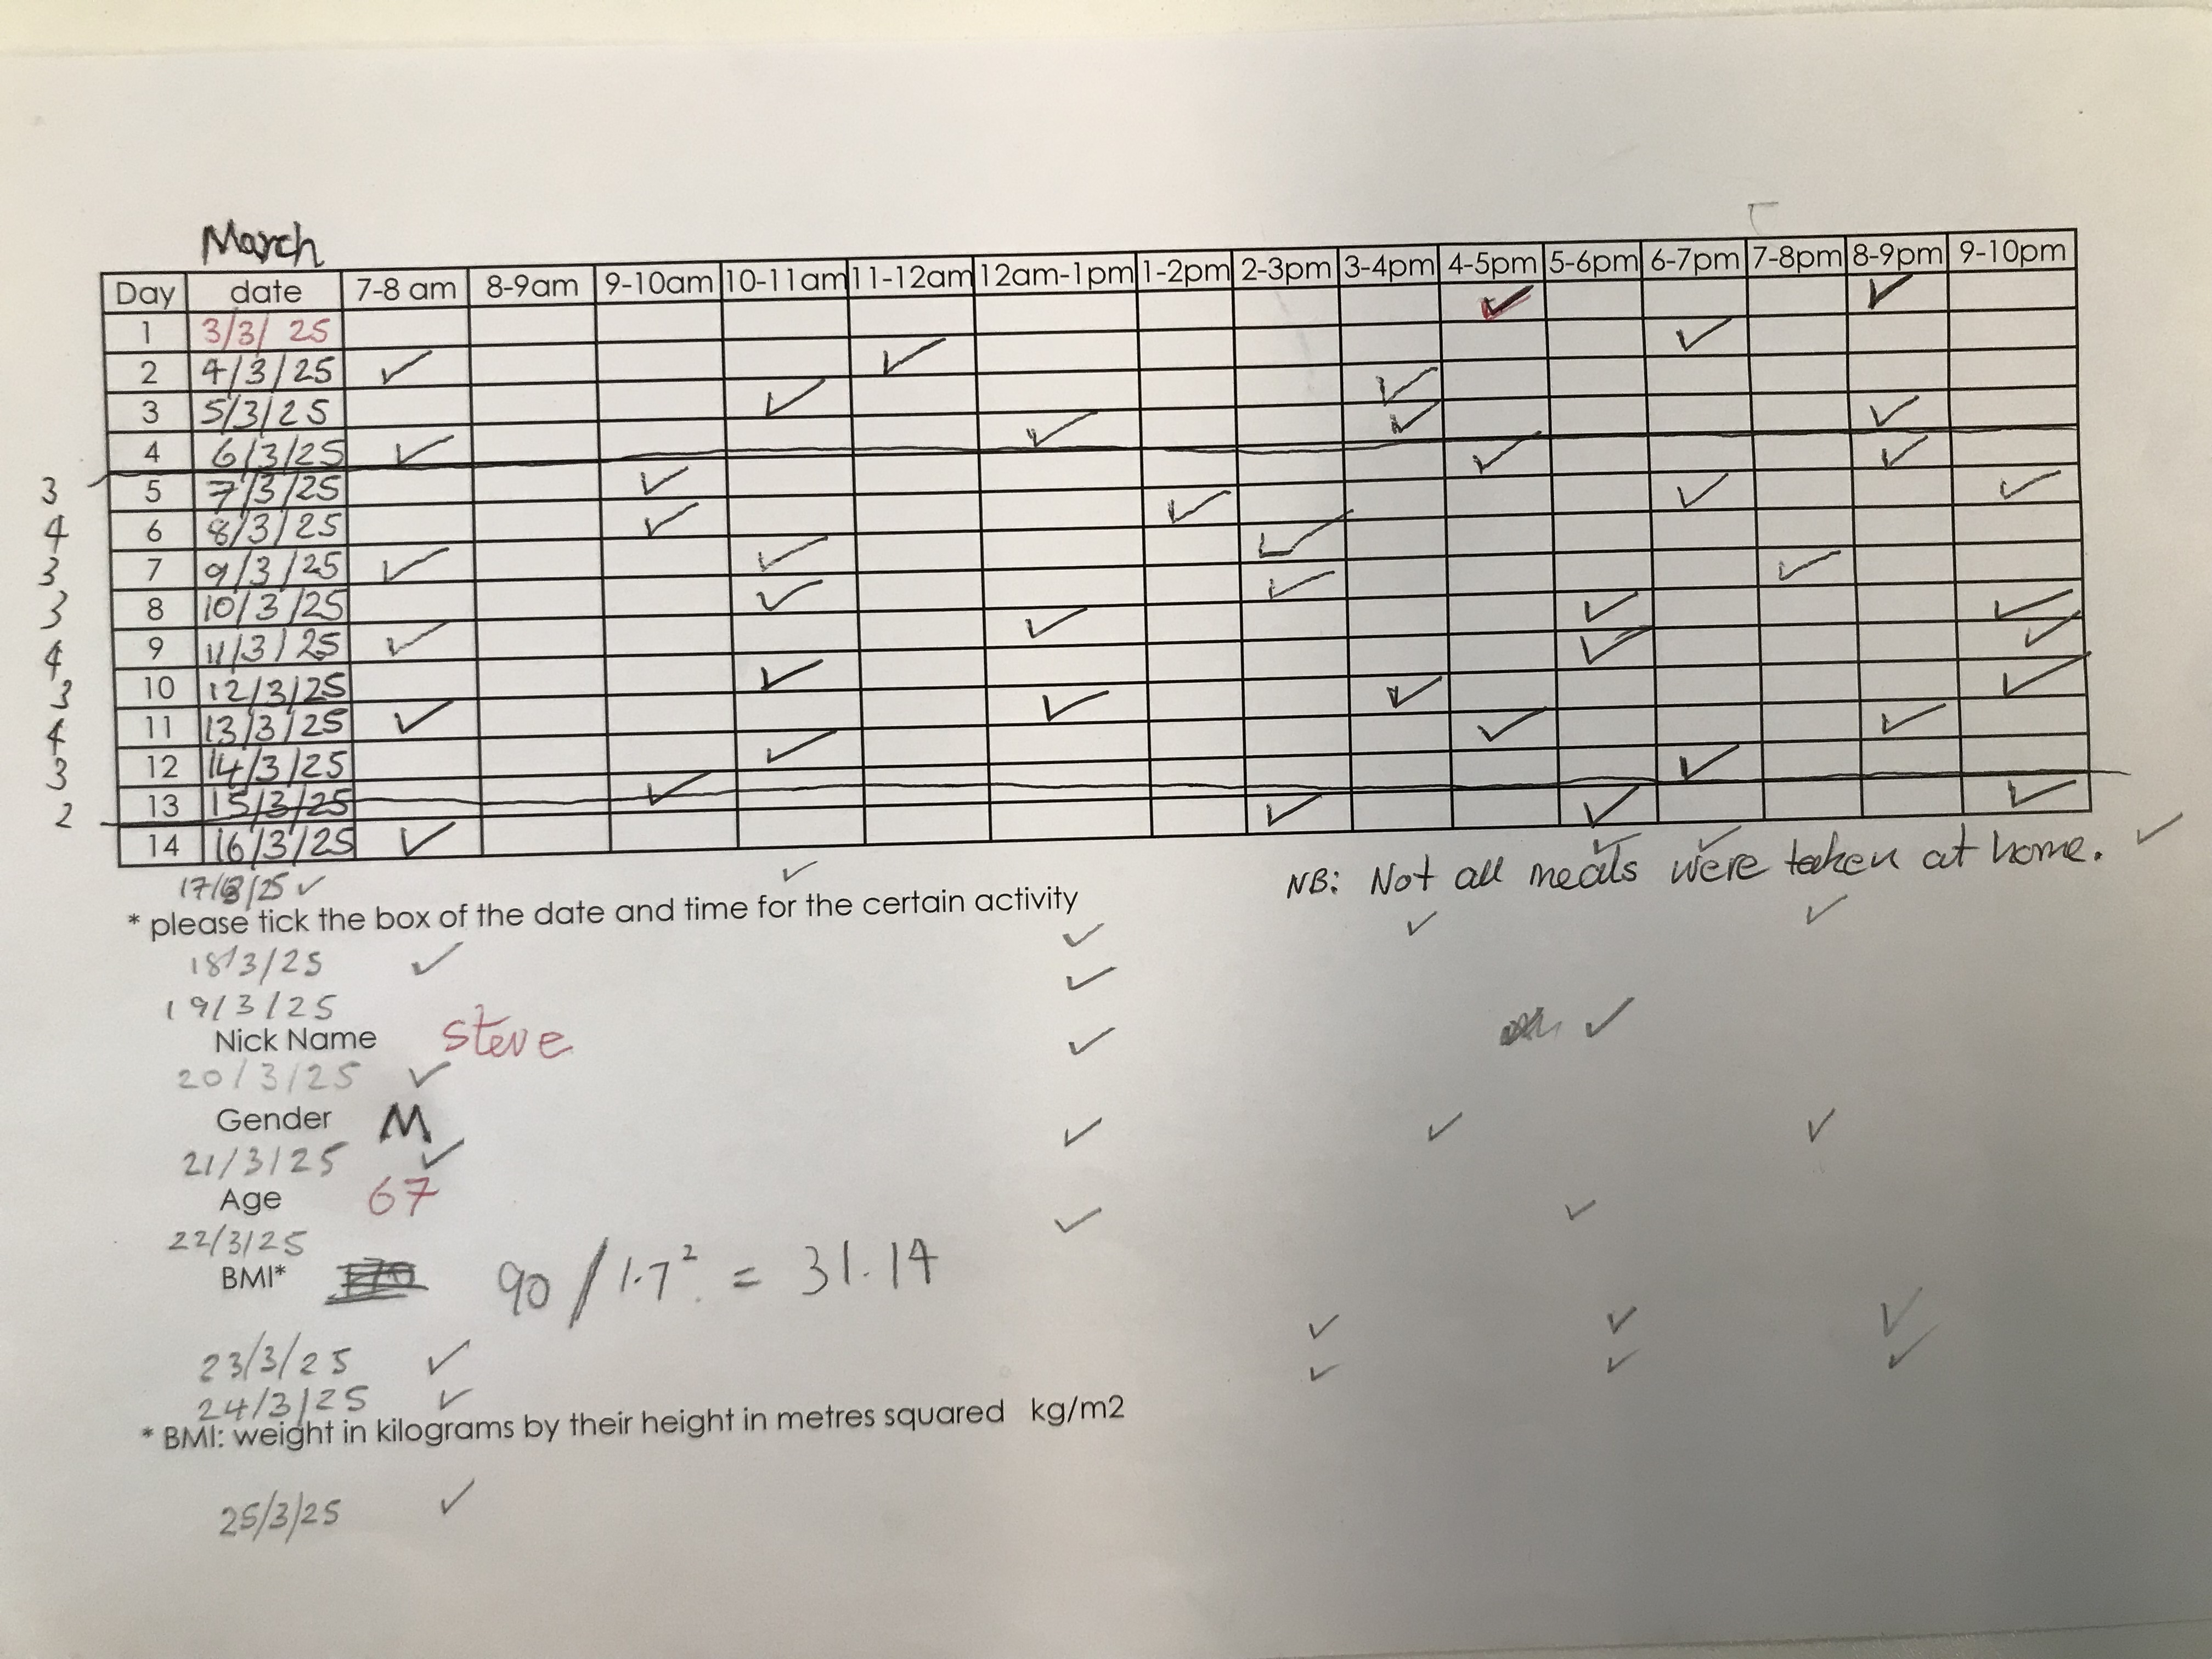 March
Day date 7-8 am 8-9am 9-10am 10-11am 11-12am 12am-1pm 1-2pm 2-3pm 3-4pm 4-5pm 5-6pm 6-7pm 7-8pm 8-9pm 9-10pm
1 3/3/25 ✓ ✓
2 4/3/25 ✓ ✓ ✓
3 5/3/25 ✓ ✓
4 6/3/25 ✓ ✓ ✓ ✓
3 5 7/3/25 ✓ ✓ ✓
4 6 8/3/25 ✓ ✓ ✓ ✓
3 7 9/3/25 ✓ ✓ ✓
3 8 10/3/25 ✓ ✓ ✓
4 9 11/3/25 ✓ ✓ ✓ ✓
3 10 12/3/25 ✓ ✓ ✓
4 11 13/3/25 ✓ ✓ ✓ ✓
3 12 14/3/25 ✓ ✓ ✓
2 13 15/3/25 ✓ ✓
14 16/3/25 ✓ ✓ ✓ ✓
17/3/25 ✓ ✓ ✓ ✓ ✓
NB: Not all meals were taken at home.
* please tick the box of the date and time for the certain activity
18/3/25 ✓ ✓ ✓ ✓
19/3/25 ✓
Nick Name Steve
20/3/25 ✓ ✓ ✓
Gender M
21/3/25 ✓ ✓ ✓ ✓
Age 67
22/3/25 ✓ ✓
BMI* 90/1.7² = 31.14
23/3/25 ✓ ✓ ✓ ✓
24/3/25 ✓ ✓ ✓ ✓
* BMI: weight in kilograms by their height in metres squared kg/m2
25/3/25 ✓